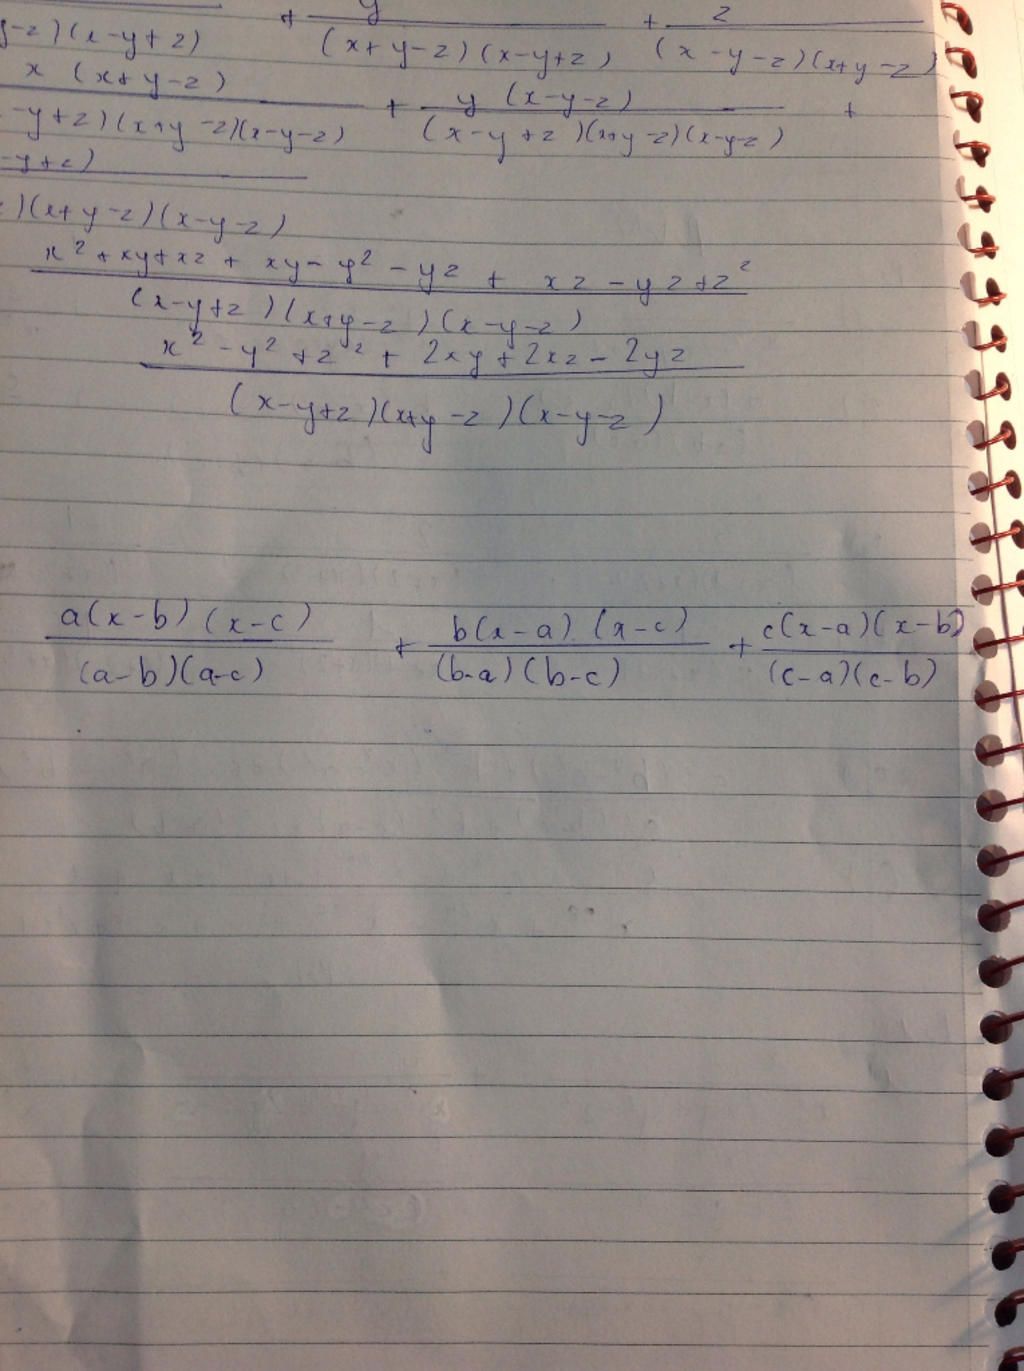 + y + 2
y-z)(x-y+z) (x+y-z)(x-y+z) (x-y-z)(x+y-z)
x (x+y-z) + y (x-y-z) +
-y+z)(x+y-z)(x-y-z) (x-y+z)(x+y-z)(x-y-z)
-y+z)
z)(x+y-z)(x-y-z)
x² + xy+xz + xy-y² -yz + xz -yz+z²
(x-y+z)(x+y-z)(x-y-z)
x² -y² +z² + 2xy+2xz-2yz
(x-y+z)(x+y-z)(x-y-z)
a(x-b)(x-c) + b(x-a)(x-c) + c(x-a)(x-b)
(a-b)(a-c) (b-a)(b-c) (c-a)(c-b)